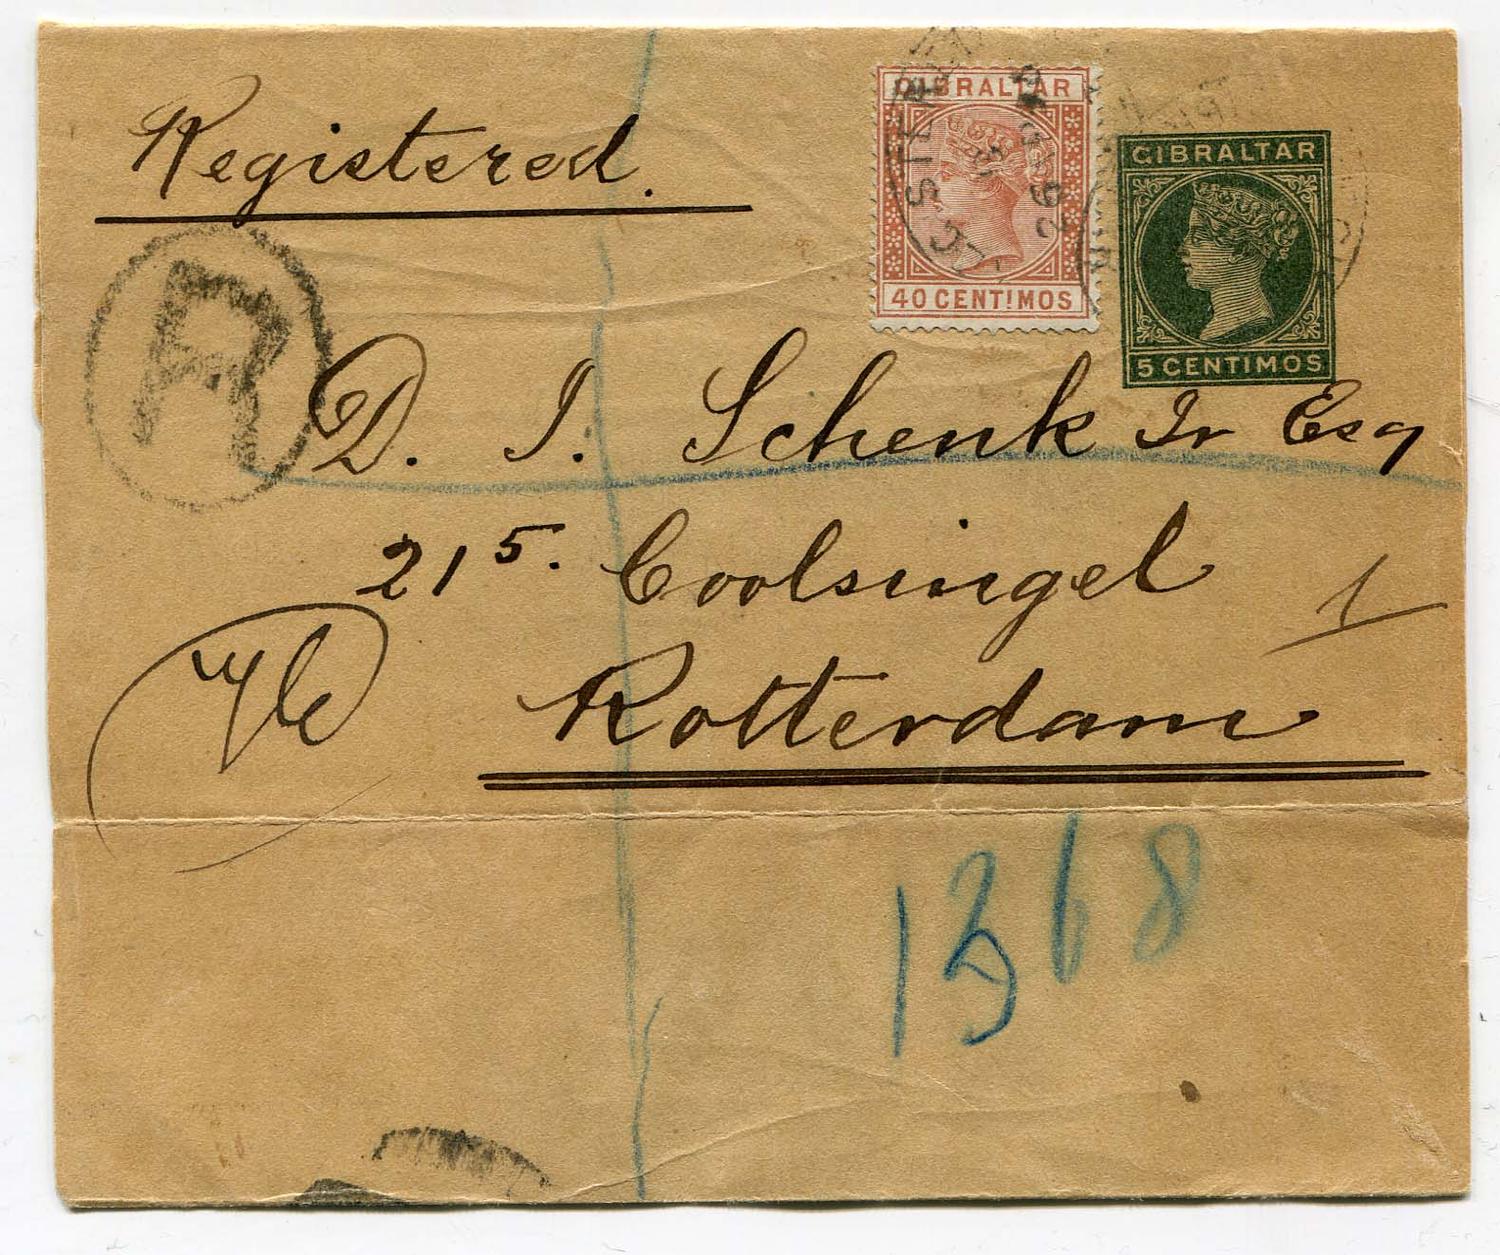 Registered.
GIBRALTAR
40 CENTIMOS
GIBRALTAR
5 CENTIMOS
R
D. I. Schenk Jr Esq
21 5. Coolsingel
1
Rotterdam
1368